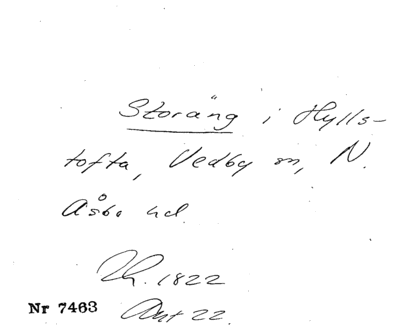 Storäng i Hylls-
tofta, Vedby sn, N.
Åsbo hd.
Lh. 1822
Nr 7463 Akt 22.